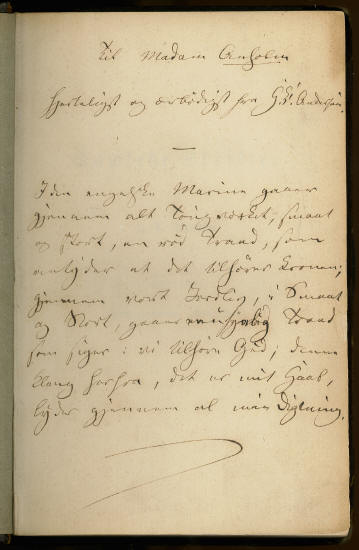 Til Madam Anholm
hjerteligst og ærbødigst fra H. C. Andersen.
I den engelske Marine gaaer
gjennem alt Tougværket, smaat
og stort, en rød Traad, som
antyder at det tilhører Kronen;
gjennem vort Jordliv, i Smaat
og Stort, gaaer en usynlig Traad
som siger: vi tilhøre Gud; denne
Klang herfra, det er mit Haab,
lyder gjennem al min Digtning.